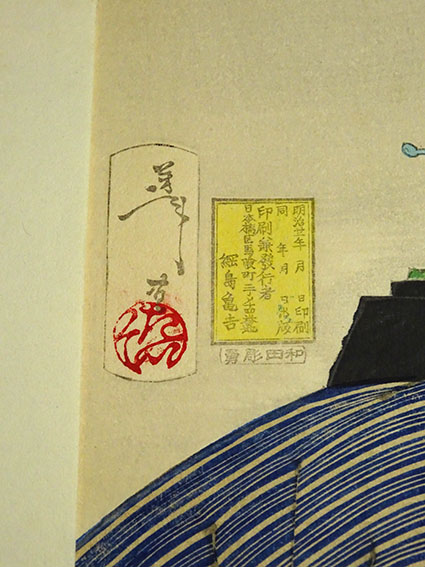 明治廿年 月 日印刷
同 年 月 日出版
印刷兼發行者
日本橋區馬喰町二丁目十四番地
綱島亀吉
和田彫勇